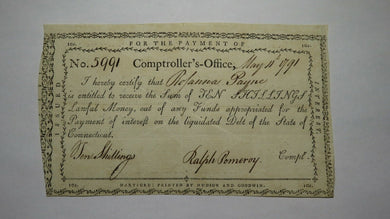 10s. FOR THE PAYMENT OF 10s.
No. 5991 Comptroller's-Office, May 11 1791
I hereby certify that Rosanna Payne
is entitled to receive the Sum of TEN SHILLINGS
Lawful Money, out of any Funds appropriated for the
Payment of interest on the liquidated Debt of the State of
Connecticut.
Ten Shillings Ralph Pomeroy Compt.
10s. HARTFORD: PRINTED BY HUDSON AND GOODWIN. 10s.
ISSUED
INTEREST